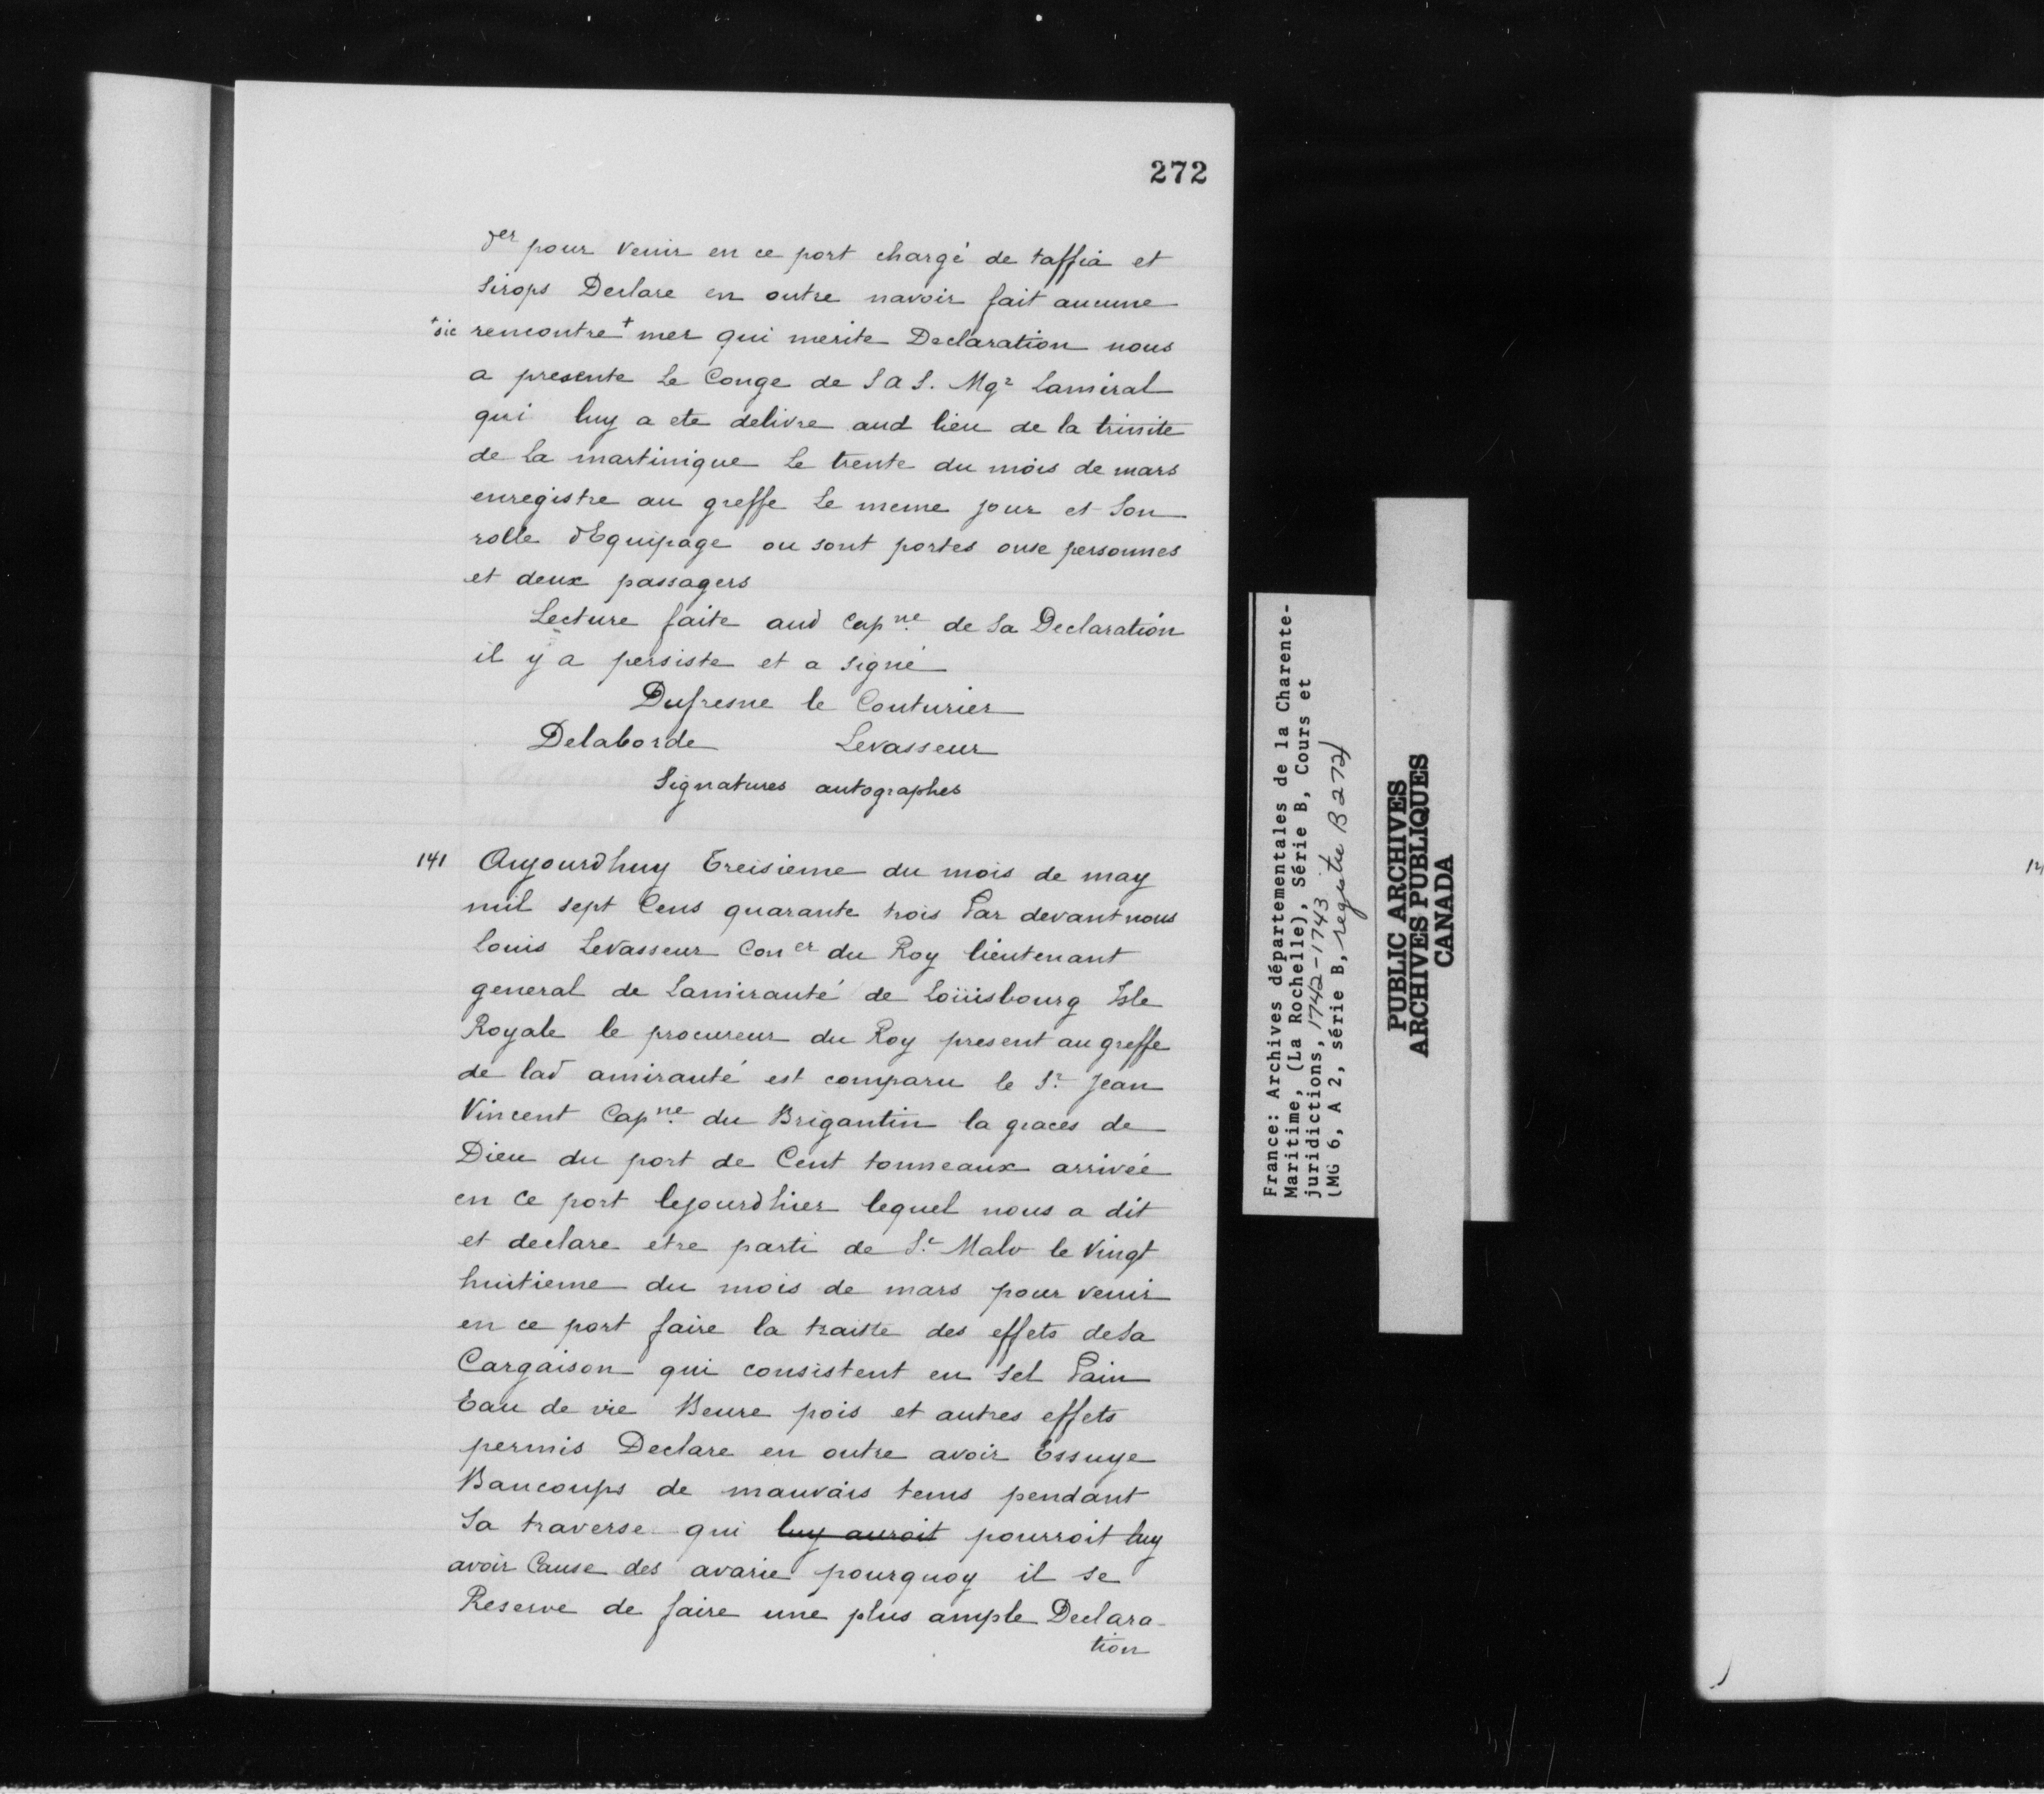 272
der pour venir en ce port chargé de taffia et
sirops Declare en outre navoir fait aucune
+sic rencontre + mer qui merite Declaration nous
a presente Le Conge de S A S. Mgr Lamiral
qui luy a ete delivre aud lieu de la trinite
de La martinique Le trente du mois de mars
enregistre au greffe Le meme jour et Son
rolle dEquipage ou sont portes onse personnes
et deux passagers
Lecture faite aud Capne. de Sa Declaration
il y a persiste et a signé
Dufresne le Couturier
Delaborde Levasseur
Signatures autographes
141 Aujourdhuy Treisieme du mois de may
mil sept Cens quarante trois Par devant nous
Louis Levasseur Coner du Roy lieutenant
general de Lamirauté de Loüisbourg Isle
Royale le procureur du Roy present au greffe
de lad amirauté est comparu le Sr. Jean
Vincent Capne. du Brigantin la graces de
Dieu du port de Cent tonneaux arrivée
en Ce port lejourdhier lequel nous a dit
et declare etre parti de St. Malo le Vingt
huitieme du mois de mars pour venir
en ce port faire la traitte des effets de Sa
Cargaison qui consistent en Sel Pain
Eau de vie Beure pois et autres effets
permis Declare en outre avoir Essuye
Baucoups de mauvais tems pendant
Sa traverse qui luy auroit pourroit luy
avoir Cause des avarie pourquoy il se
Reserve de faire une plus ample Declara-
tion
France: Archives départementales de la Charente-
Maritime, (La Rochelle), Série B, Cours et
juridictions, 1742-1743
(MG 6, A 2, série B, registre B 272)
PUBLIC ARCHIVES
ARCHIVES PUBLIQUES
CANADA